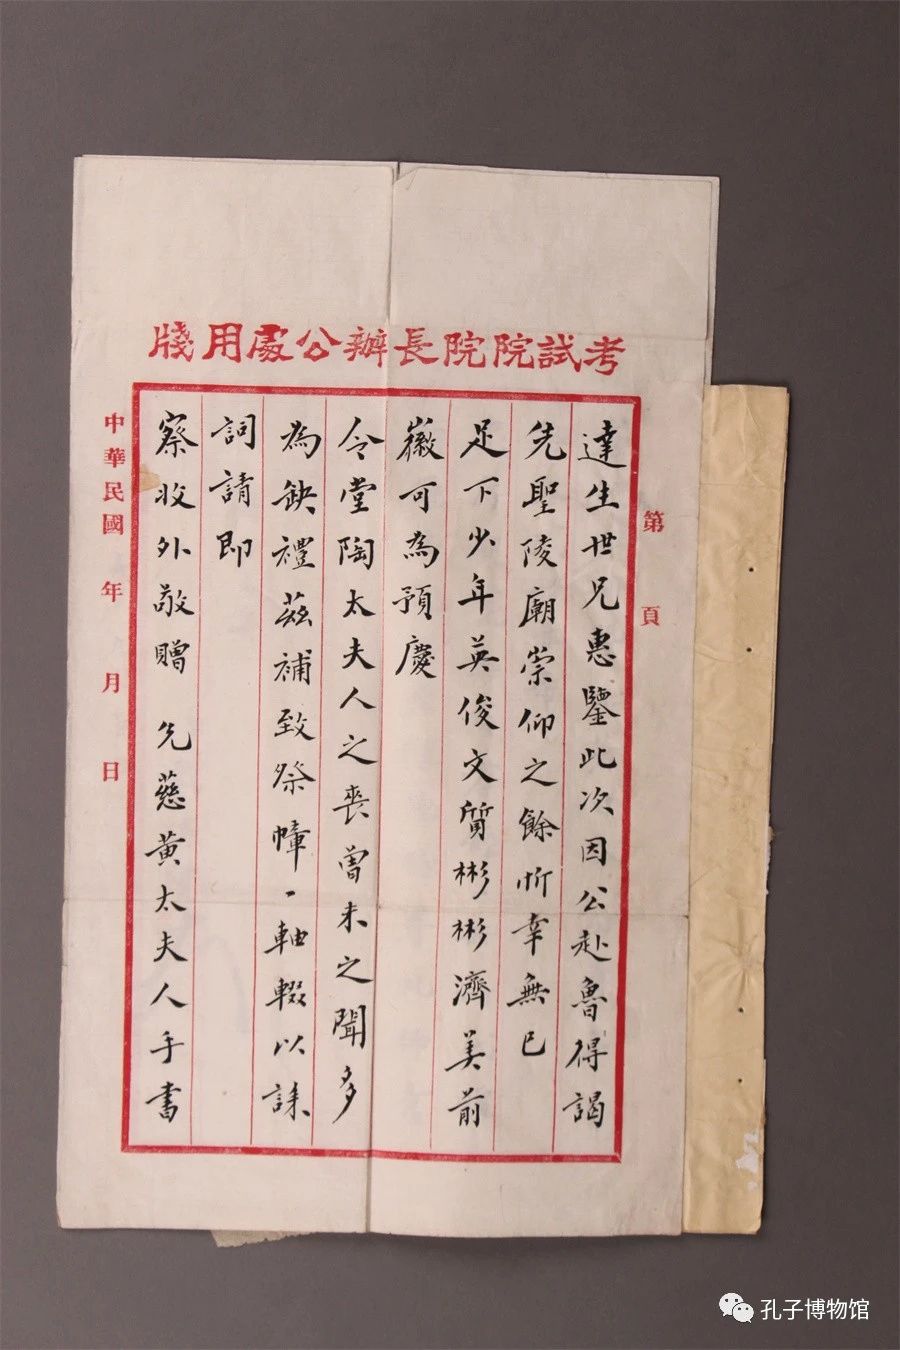 考試院院長辦公處用牋
第　頁
達生世兄惠鑒此次因公赴魯得謁
先聖陵廟崇仰之餘忻幸無已
足下少年英俊文質彬彬濟美前
徽可為預慶
令堂陶太夫人之喪曾未之聞多
為缺禮茲補致祭幛一軸輟以誄
詞請即
察收外敬贈　先慈黃太夫人手書
中華民國　年　月　日
孔子博物馆